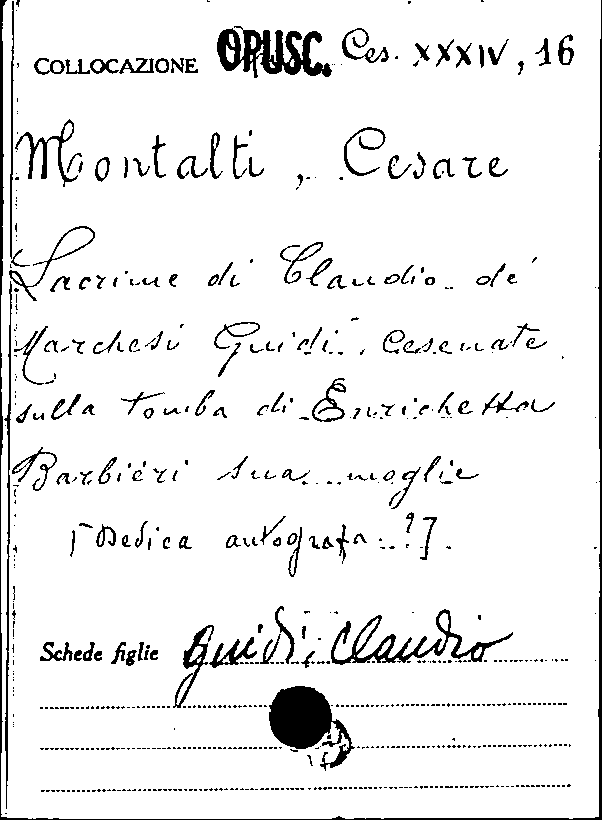 COLLOCAZIONE OPUSC. Ces. XXXIV, 16
Montalti, Cesare
Lacrime di Claudio de'
Marchesi Guidi, Cesenate
sulla tomba di Enrichetta
Barbieri sua moglie
[Dedica autografa ?].
Schede figlie Guidi, Claudio